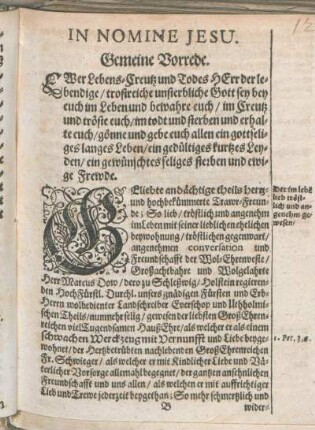 IN NOMINE JESU.
Gemeine Vorrede.
EWer Lebens-Creutz und Todes HErr der le-
bendige / trostreiche unsterbliche Gott sey bey
euch im Leben und bewahre euch / im Creutz
und tröste euch / im todt und sterben und erhal-
te euch / gönne und gebe euch allen ein gottseli-
ges langes Leben / ein gedültiges kurtzes Ley-
den / ein gewünschtes seliges sterben und ewi-
ge Frewde.
GEliebte andächtige theils hertz-
und hochbekümmerte Trawr-Freun-
de; So lieb / tröstlich und angenehm
im Leben mit seiner lieblichen ehelichen
beywohnung / tröstlichen gegenwart /
angenehmen conversation und
Freundschafft der Wol-Ehrenveste /
Großachtbahre und Wolgelahrte
Herr Marcus Dow / dero zu Schleßwig / Holstein regieren-
den HochFürstl. Durchl. unsers gnädigen Fürsten und Erb-
Herren wolbedienter Landschreiber Everschop und
Theils / nunmehr selig / gewesen der liebsten Groß Ehren-
reichen viel Tugendsamen Hauß Ehr / als welcher er als einem
schwachen Werckzeug mit Vernunfft und Liebe beyge-
wohnet / der Hertzbetrübten nachlebenden Groß Ehrenreichen
Fr. Schwieger / als welcher er mit Kindlicher Liebe und Vä-
terlicher Vorsorge allemahl begegnet / der gantzen ansehnlichen
Freundschafft und uns allen / als welchen er mit auffrichtiger
Lieb und Trewe jederzeit beygethan; So mehr schmertzlich und
B
wider-
Der im lebē
lieb tröst-
lich und an-
genehm ge-
wesen /
1. Pet. 3.